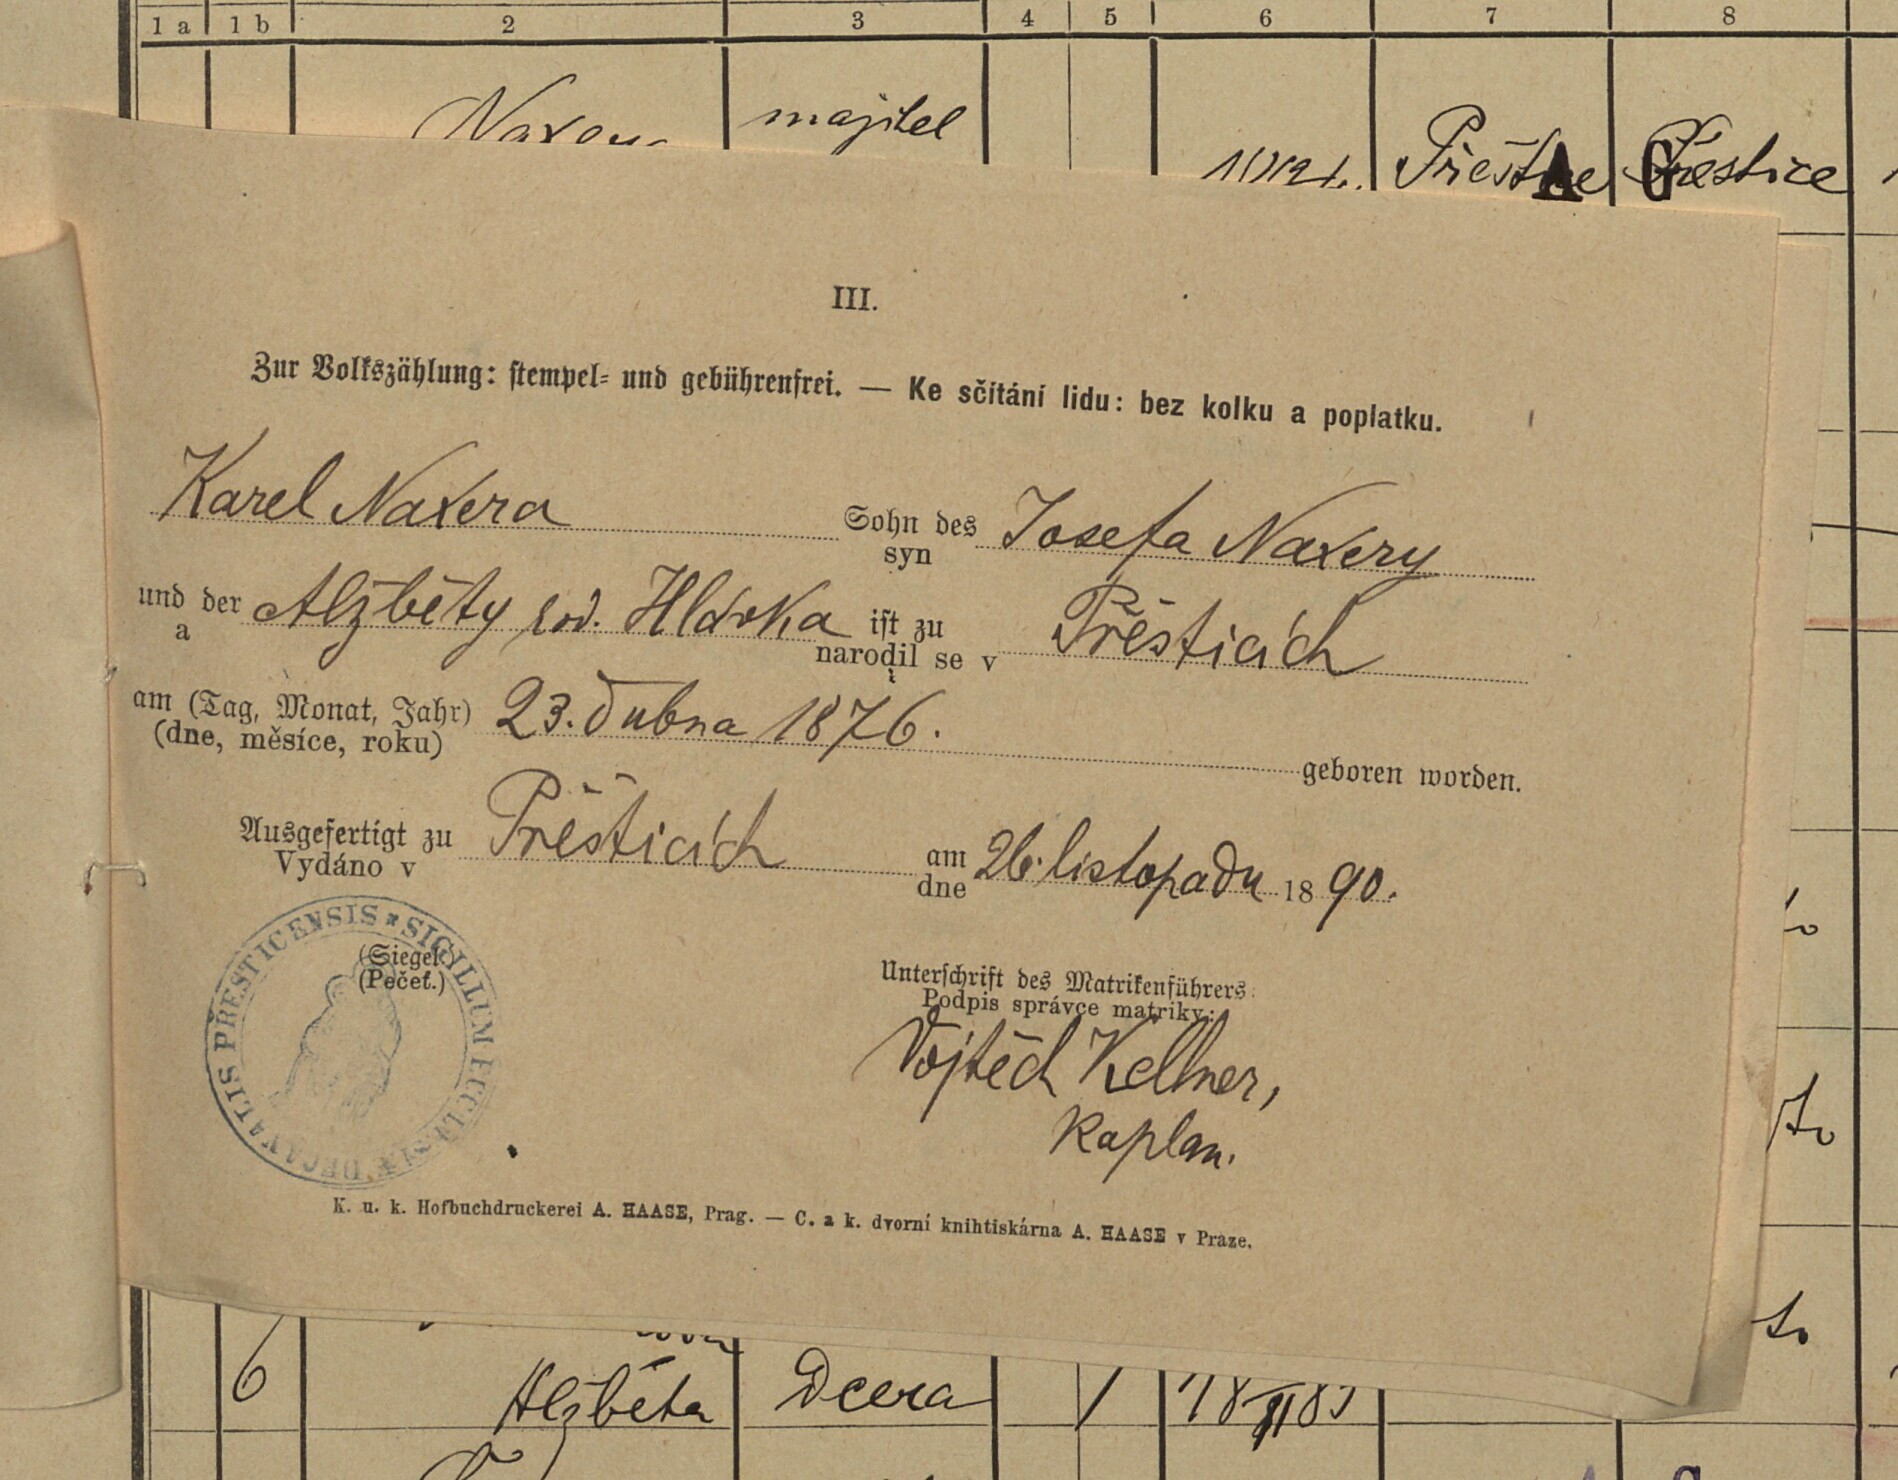 1 a 1 b 2 3 4 5 6 7 8
majitel
Přeštice Přestice
III.
Zur Volkszählung: stempel- und gebührenfrei. — Ke sčítání lidu: bez kolku a poplatku.
Karel Naxera Sohn des Josefa Naxery
syn
und der Alžběty rod. Hlávka ist zu Přěsticích
a narodil se v
am (Tag, Monat, Jahr) 23. dubna 1876.
(dne, měsíce, roku) geboren worden.
Ausgefertigt zu Přěsticích am 26. listopadu 1890.
Vydáno v dne
(Siegel)
(Pečeť.)
SIGILLUM ECCLESIÆ DECANALIS PRESTICENSIS
Unterschrift des Matrikenführers:
Podpis správce matriky:
Vojtěch Kellner,
Kaplan.
K. u. k. Hofbuchdruckerei A. HAASE, Prag. — C. a k. dvorní knihtiskárna A. HAASE v Praze.
6 Alžběta Dcera 1